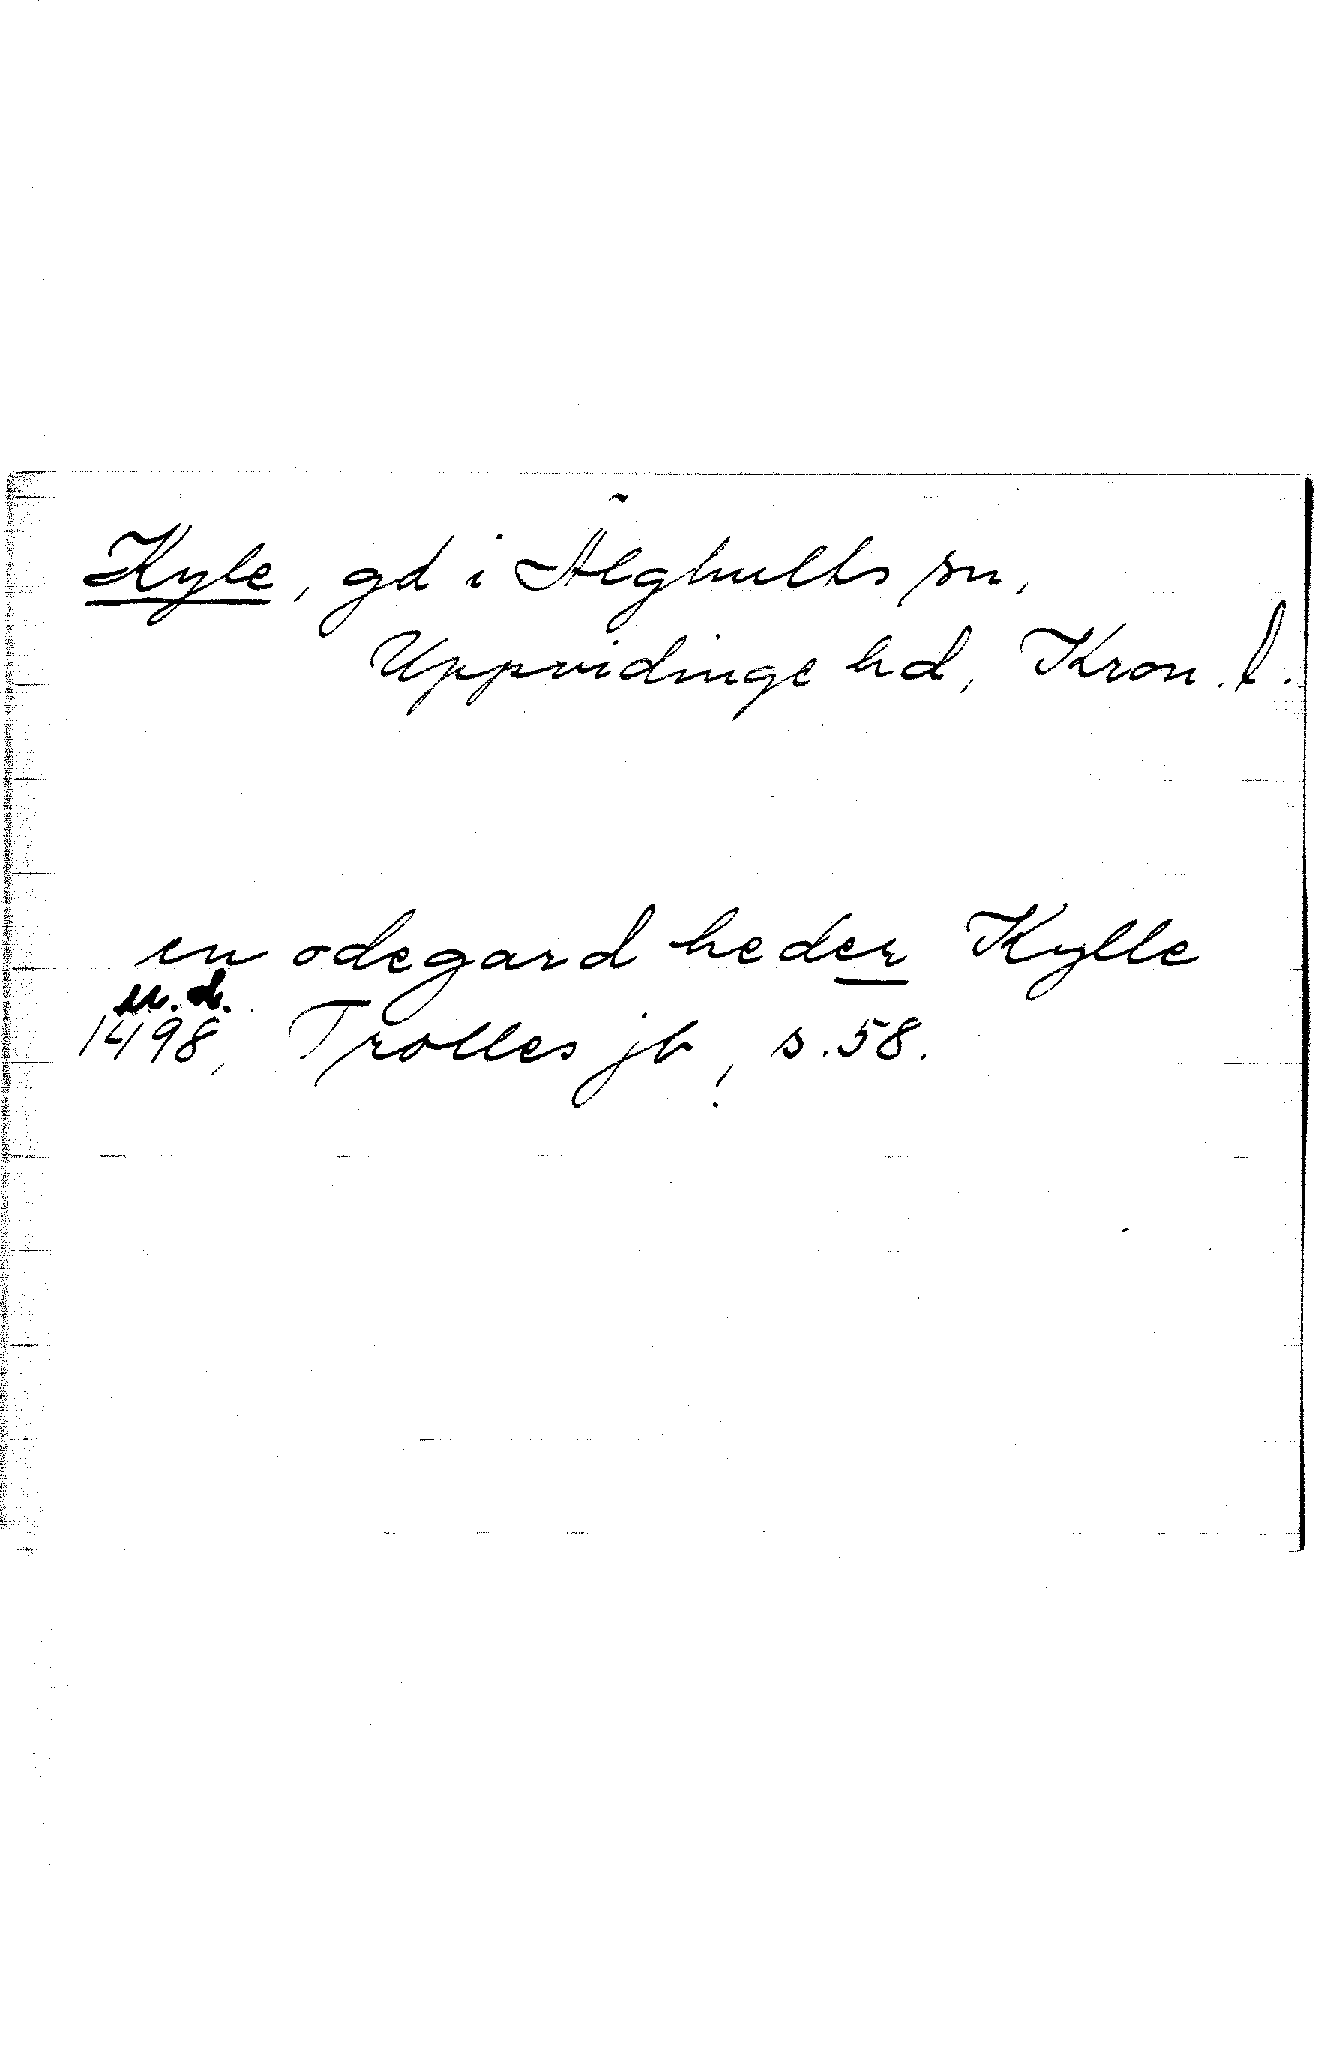 Kyle, gd i Älghults sn,
Uppvidinge hd, Kron. l.
en odegard heder Kylle
u.d.
1498, Trolles jb, s. 58.